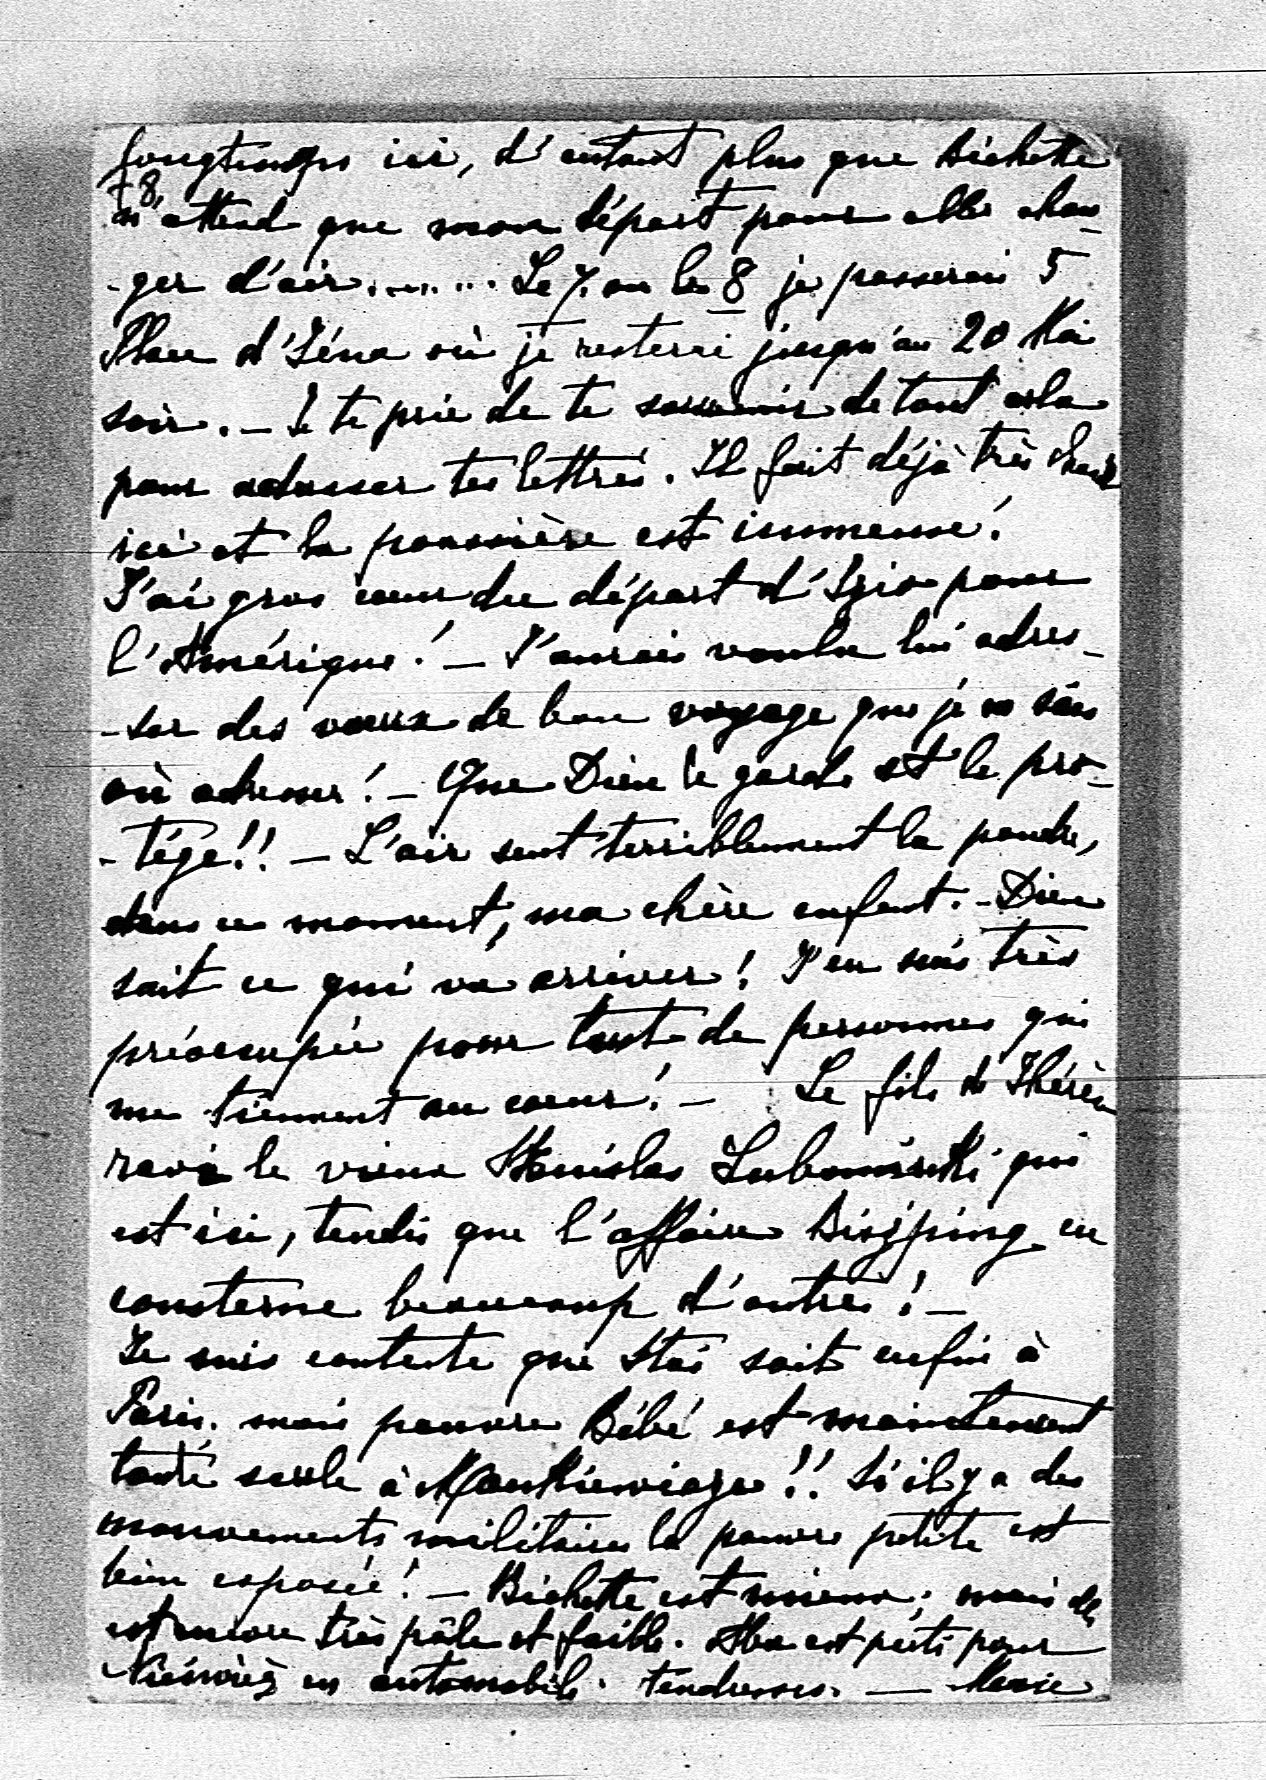 longtemps ici, d'autant plus que Bichette
+8.
n'attend que mon départ pour aller chan-
-ger d'air........ Le 7. ou le 8 je passerai 5
Place d'Iéna où je resterai jusqu'au 20 Mai
soir. — Je te prie de te souvenir de tout cela
pour adresser tes lettres. Il fait déjà très chaud
ici et la poussière est immense!
J'ai gros cœur du départ d'Izio pour
l'Amérique! — J'aurais voulu lui adres-
-ser des vœux de bon voyage que je ne sais
où adresser! — Que Dieu le garde et le pro-
-tége!! — L'air sent terriblement la poudre,
dans ce moment, ma chère enfant. — Dieu
sait ce qui va arriver! J'en suis très
préoccupée pour tant de personnes qui
me tiennent au cœur! — Le fils de Thérèse
ravi le vieux Stanislas Lubomirski qui
est ici, tandis que l'affaire Bisping en
consterne beaucoup d'autres! —
Je suis contente que Stas soit enfin à
Paris. mais pauvre Bébé est maintenant
toute seule à !! S'il y a des
mouvements militaires la pauvre petite est
bien exposée! — Bichette est mieux; mais elle
est encore très pâle et faible. Aba est parti pour
Nieśwież en automobile. Tendresses. — Marie